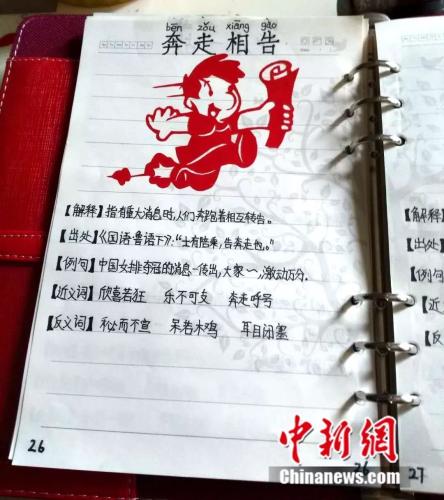 bēn zǒu xiāng gào
奔走相告
【解释】指有重大消息时,人们奔跑着相互转告。
【出处】《国语·鲁语下》:“士有陪乘,告奔走也。”
【例句】中国女排夺冠的消息一传出,大家~,激动万分。
【近义词】欣喜若狂 乐不可支 奔走呼号
【反义词】秘而不宣 呆若木鸡 耳目闭塞
26
26
【解释】
【出处】
【例句】
【近
【反
27
中新网
Chinanews.com